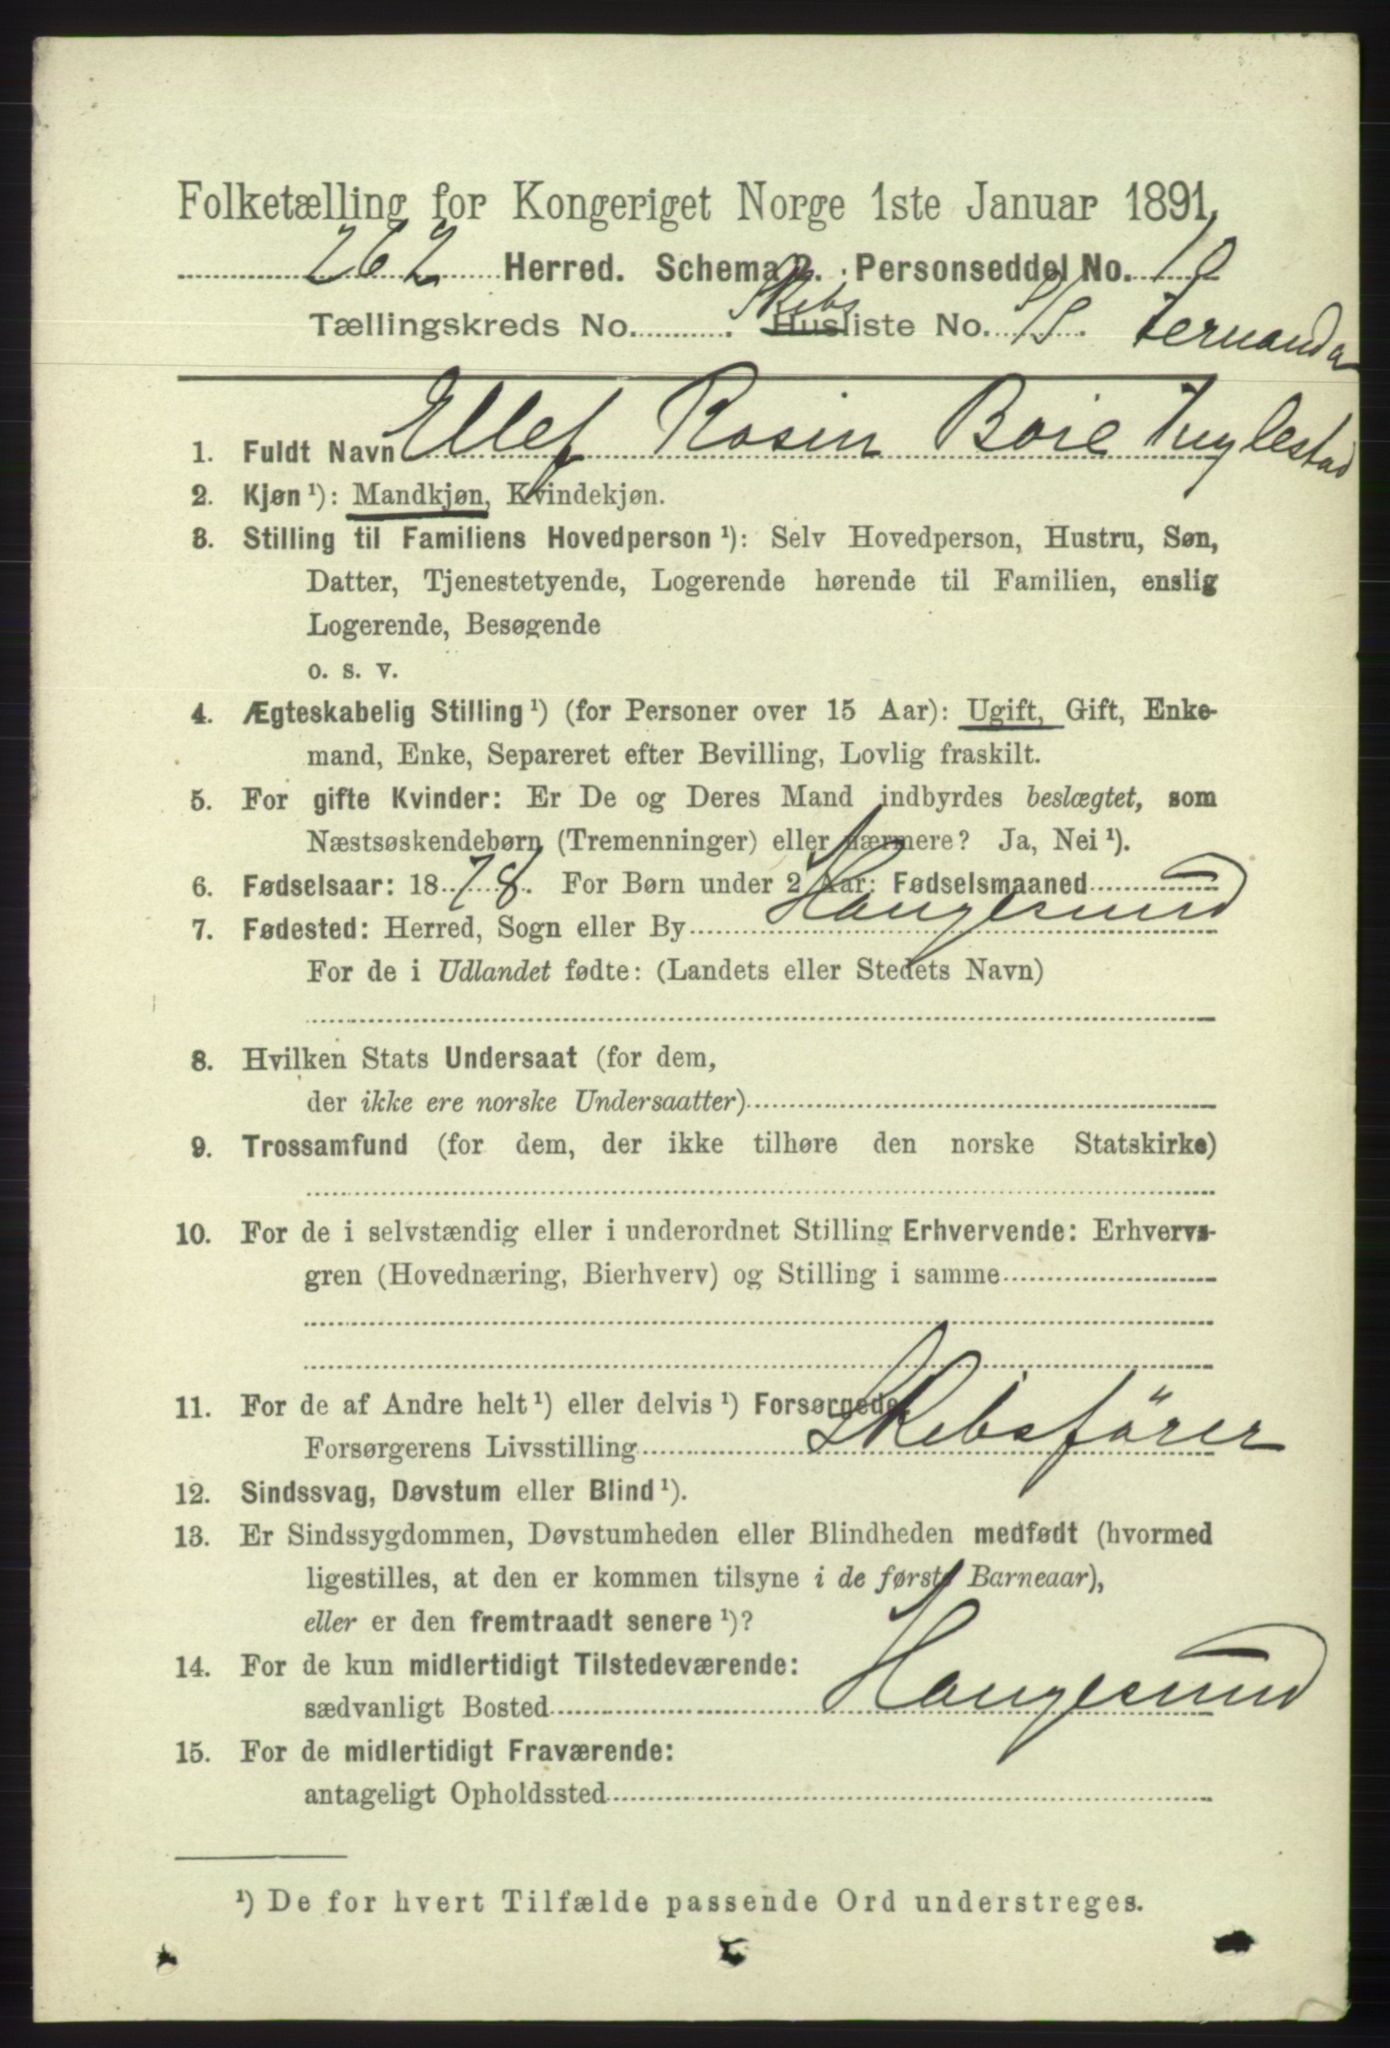 Folketælling for Kongeriget Norge 1ste Januar 1891.
262 Herred. Schema 2. Personseddel No. 10
Tællingskreds No. Skibs Husliste No. S/S. Fernanda
1. Fuldt Navn Ellef Rosin Boie Fuglestad
2. Kjøn ¹): Mandkjøn, Kvindekjøn.
3. Stilling til Familiens Hovedperson ¹): Selv Hovedperson, Hustru, Søn,
Datter, Tjenestetyende, Logerende hørende til Familien, enslig
Logerende, Besøgende
o. s. v.
4. Ægteskabelig Stilling ¹) (for Personer over 15 Aar): Ugift, Gift, Enke-
mand, Enke, Separeret efter Bevilling, Lovlig fraskilt.
5. For gifte Kvinder: Er De og Deres Mand indbyrdes beslægtet, som
Næstsøskendebørn (Tremenninger) eller nærmere? Ja, Nei ¹).
6. Fødselsaar: 1878. For Børn under 2 Aar: Fødselsmaaned
7. Fødested: Herred, Sogn eller By Haugesund
For de i Udlandet fødte: (Landets eller Stedets Navn)
8. Hvilken Stats Undersaat (for dem,
der ikke ere norske Undersaatter)
9. Trossamfund (for dem, der ikke tilhøre den norske Statskirke)
10. For de i selvstændig eller i underordnet Stilling Erhvervende: Erhvervs-
gren (Hovednæring, Bierhverv) og Stilling i samme
11. For de af Andre helt ¹) eller delvis ¹) Forsørgede:
Forsørgerens Livsstilling Skibsförer
12. Sindssvag, Døvstum eller Blind ¹).
13. Er Sindssygdommen, Døvstumheden eller Blindheden medfødt (hvormed
ligestilles, at den er kommen tilsyne i de første Barneaar),
eller er den fremtraadt senere ¹)?
14. For de kun midlertidigt Tilstedeværende:
sædvanligt Bosted Haugesund
15. For de midlertidigt Fraværende:
antageligt Opholdssted
¹) De for hvert Tilfælde passende Ord understreges.